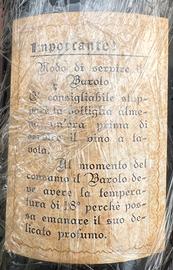 Importante!
Modo di servire il
Barolo
E' consigliabile stap-
pare la bottiglia alme-
no un'ora prima di
servire il vino a ta-
vola.
Al momento del
consumo il Barolo de-
ve avere la tempera-
tura di 18° perchè pos-
sa emanare il suo de-
licato profumo.